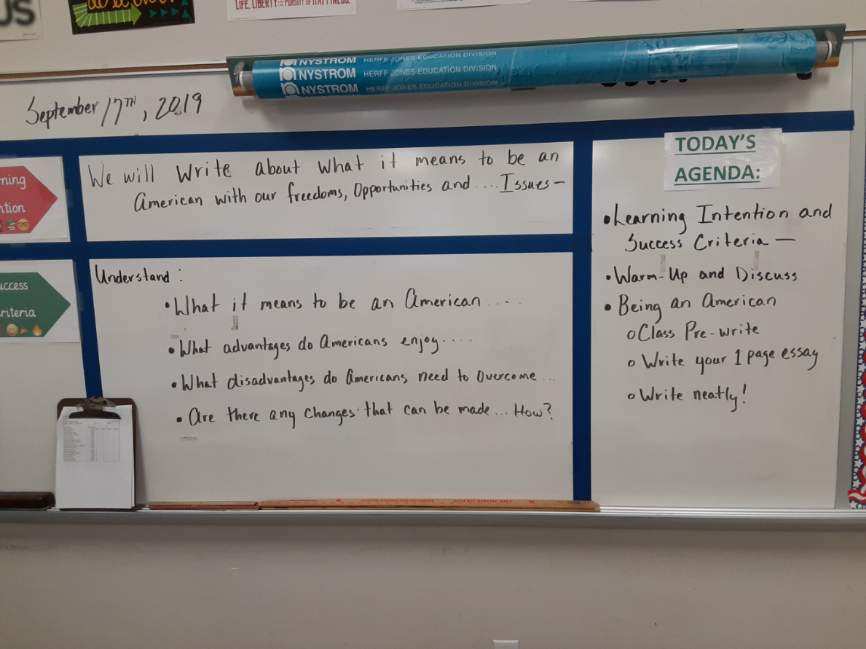 LIFE, LIBERTY
NYSTROM HERFF JONES EDUCATION DIVISION
NYSTROM HERFF JONES EDUCATION DIVISION
NYSTROM HERFF JONES EDUCATION DIVISION
September 17TH, 2019
We will write about what it means to be an
American with our freedoms, Opportunities and .... Issues-
Understand:
• What it means to be an American ....
• What advantages do Americans enjoy....
• What disadvantages do Americans need to overcome...
• Are there any changes that can be made... How?
TODAY'S
AGENDA:
• Learning Intention and
Success Criteria -
• Warm-Up and Discuss
• Being an American
o Class Pre-write
o Write your 1 page essay
o Write neatly!